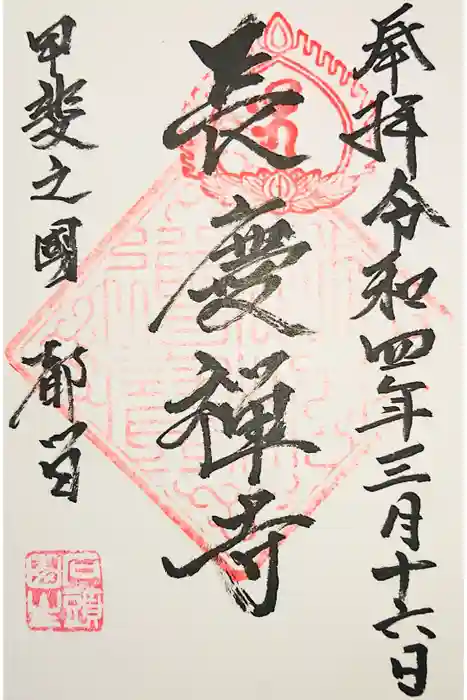 奉拝令和四年三月十六日
長慶禅寺
甲斐之國 都留